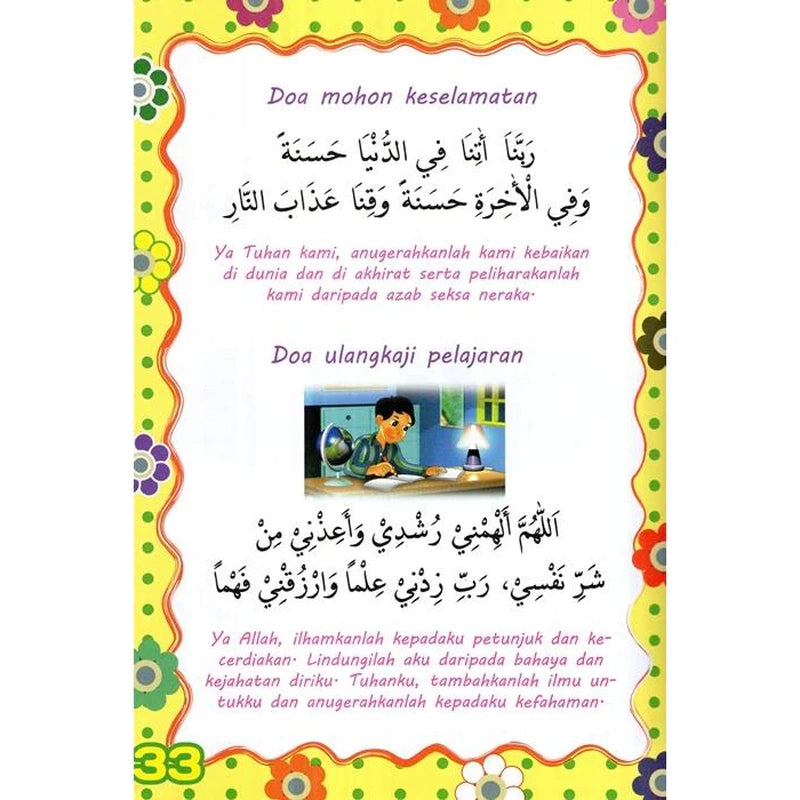 Doa mohon keselamatan
رَبَّنَا أَتِنَا فِي الدُّنْيَا حَسَنَةً
وَفِي الْأَخِرَةِ حَسَنَةً وَقِنَا عَذَابَ النَّارِ
Ya Tuhan kami, anugerahkanlah kami kebaikan
di dunia dan di akhirat serta peliharakanlah
kami daripada azab seksa neraka.
Doa ulangkaji pelajaran
اَللّٰهُمَّ أَلْهِمْنِيْ رُشْدِيْ وَأَعِذْنِيْ مِنْ
شَرِّ نَفْسِيْ، رَبِّ زِدْنِيْ عِلْماً وَارْزُقْنِيْ فَهْماً
Ya Allah, ilhamkanlah kepadaku petunjuk dan ke-
cerdiakan. Lindungilah aku daripada bahaya dan
kejahatan diriku. Tuhanku, tambahkanlah ilmu un-
tukku dan anugerahkanlah kepadaku kefahaman.
33